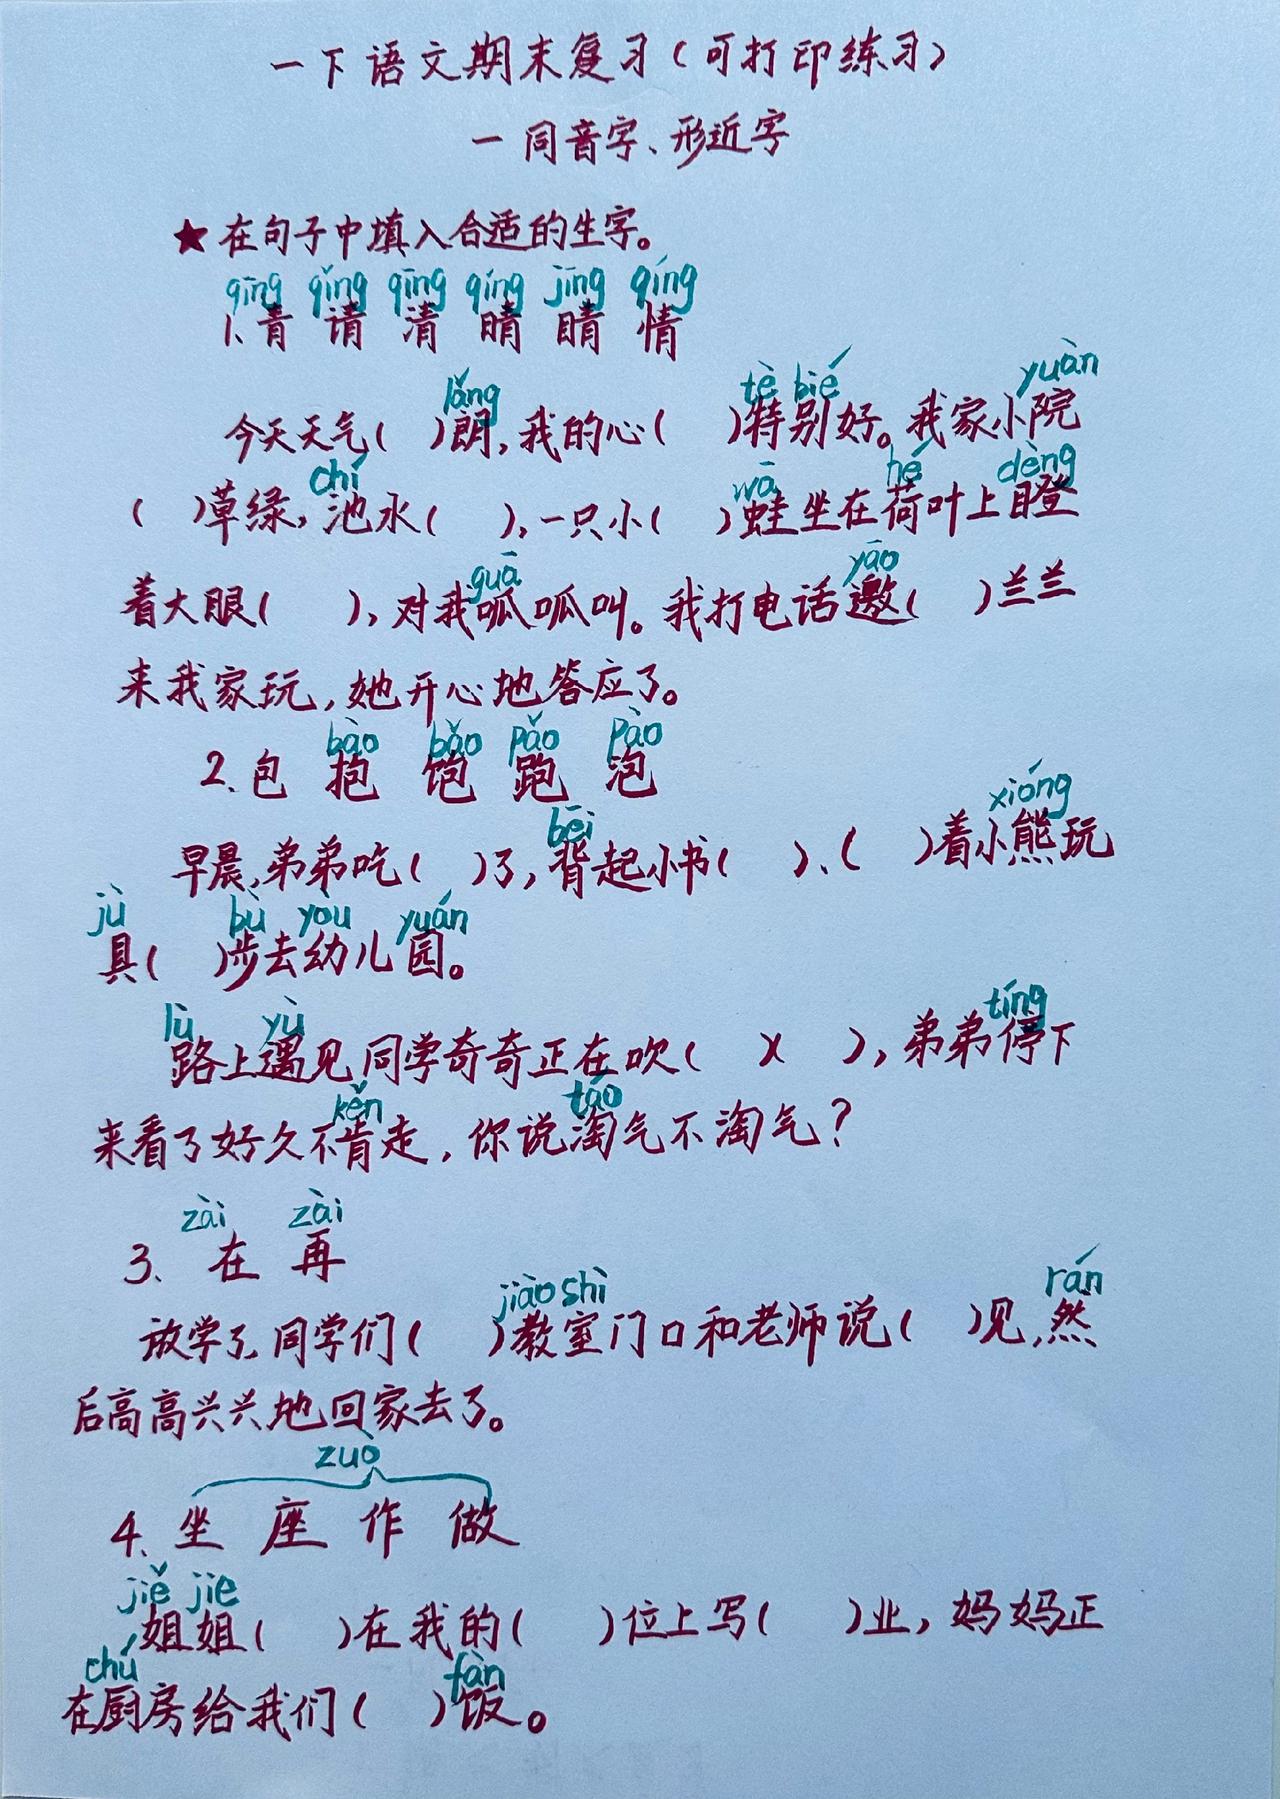 一下语文期末复习(可打印练习)
一 同音字、形近字
★在句子中填入合适的生字。
qīng qǐng qīng qíng jīng qíng
1、青 请 清 晴 睛 情
lǎng tè bié yuàn
今天天气( )朗,我的心( )特别好。我家小院
chí wā hé dèng
( )草绿,池水( ),一只小( )蛙坐在荷叶上瞪
guā yāo
着大眼( ),对我呱呱叫。我打电话邀( )兰兰
来我家玩,她开心地答应了。
bào bǎo pǎo pào
2、包 抱 饱 跑 泡
bēi xióng
早晨,弟弟吃( )了,背起小书( )、( )着小熊玩
jù bù yòu yuán
具( )步去幼儿园。
lù yù tíng
路上遇见同学奇奇正在吹( X ),弟弟停下
kěn táo
来看了好久不肯走,你说淘气不淘气?
zài zài
3、在 再
jiào shì rán
放学了,同学们( )教室门口和老师说( )见,然
后高高兴兴地回家去了。
zuò
4、坐 座 作 做
jiě jie
姐姐( )在我的( )位上写( )业,妈妈正
chú fàn
在厨房给我们( )饭。